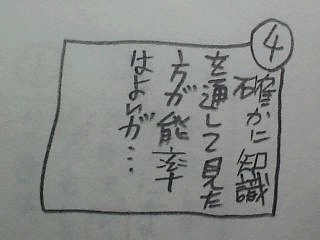 ④
確かに知識
を通して見た
方が能率
はよいが…